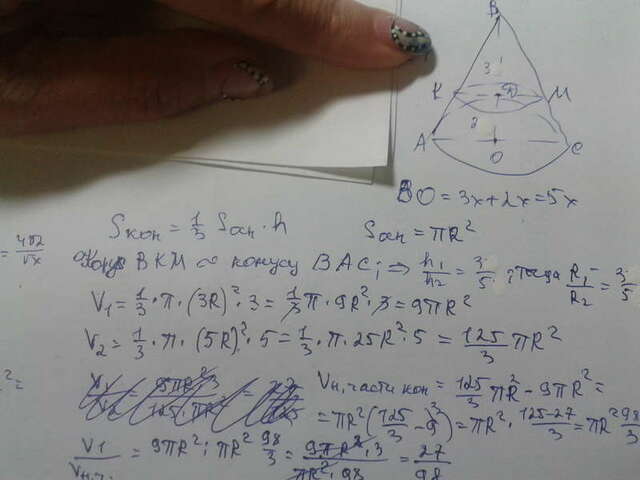 B
3
K D M
2
A O C
BO = 3x + 2x = 5x
Sкон = 1/3 Sосн · h Sосн = πR²
= 4π2/√x
Конус BKM ∾ конусу BAC; ⇒ h₁/h₂ = 3/5; тогда R₁/R₂ = 3/5
V₁ = 1/3 · π · (3R)² · 3 = 1/3 π · 9R² · 3 = 9πR²
V₂ = 1/3 · π · (5R)² · 5 = 1/3 · π · 25R² · 5 = 125/3 πR²
²=
Vн. части кон = 125/3 πR² - 9πR² =
= πR² (125/3 - 9) = πR² · 125-27/3 = πR² 98/3
V1/Vн.ч. = 9πR² : πR² 98/3 = 9πR² · 3/πR² · 98 = 27/98